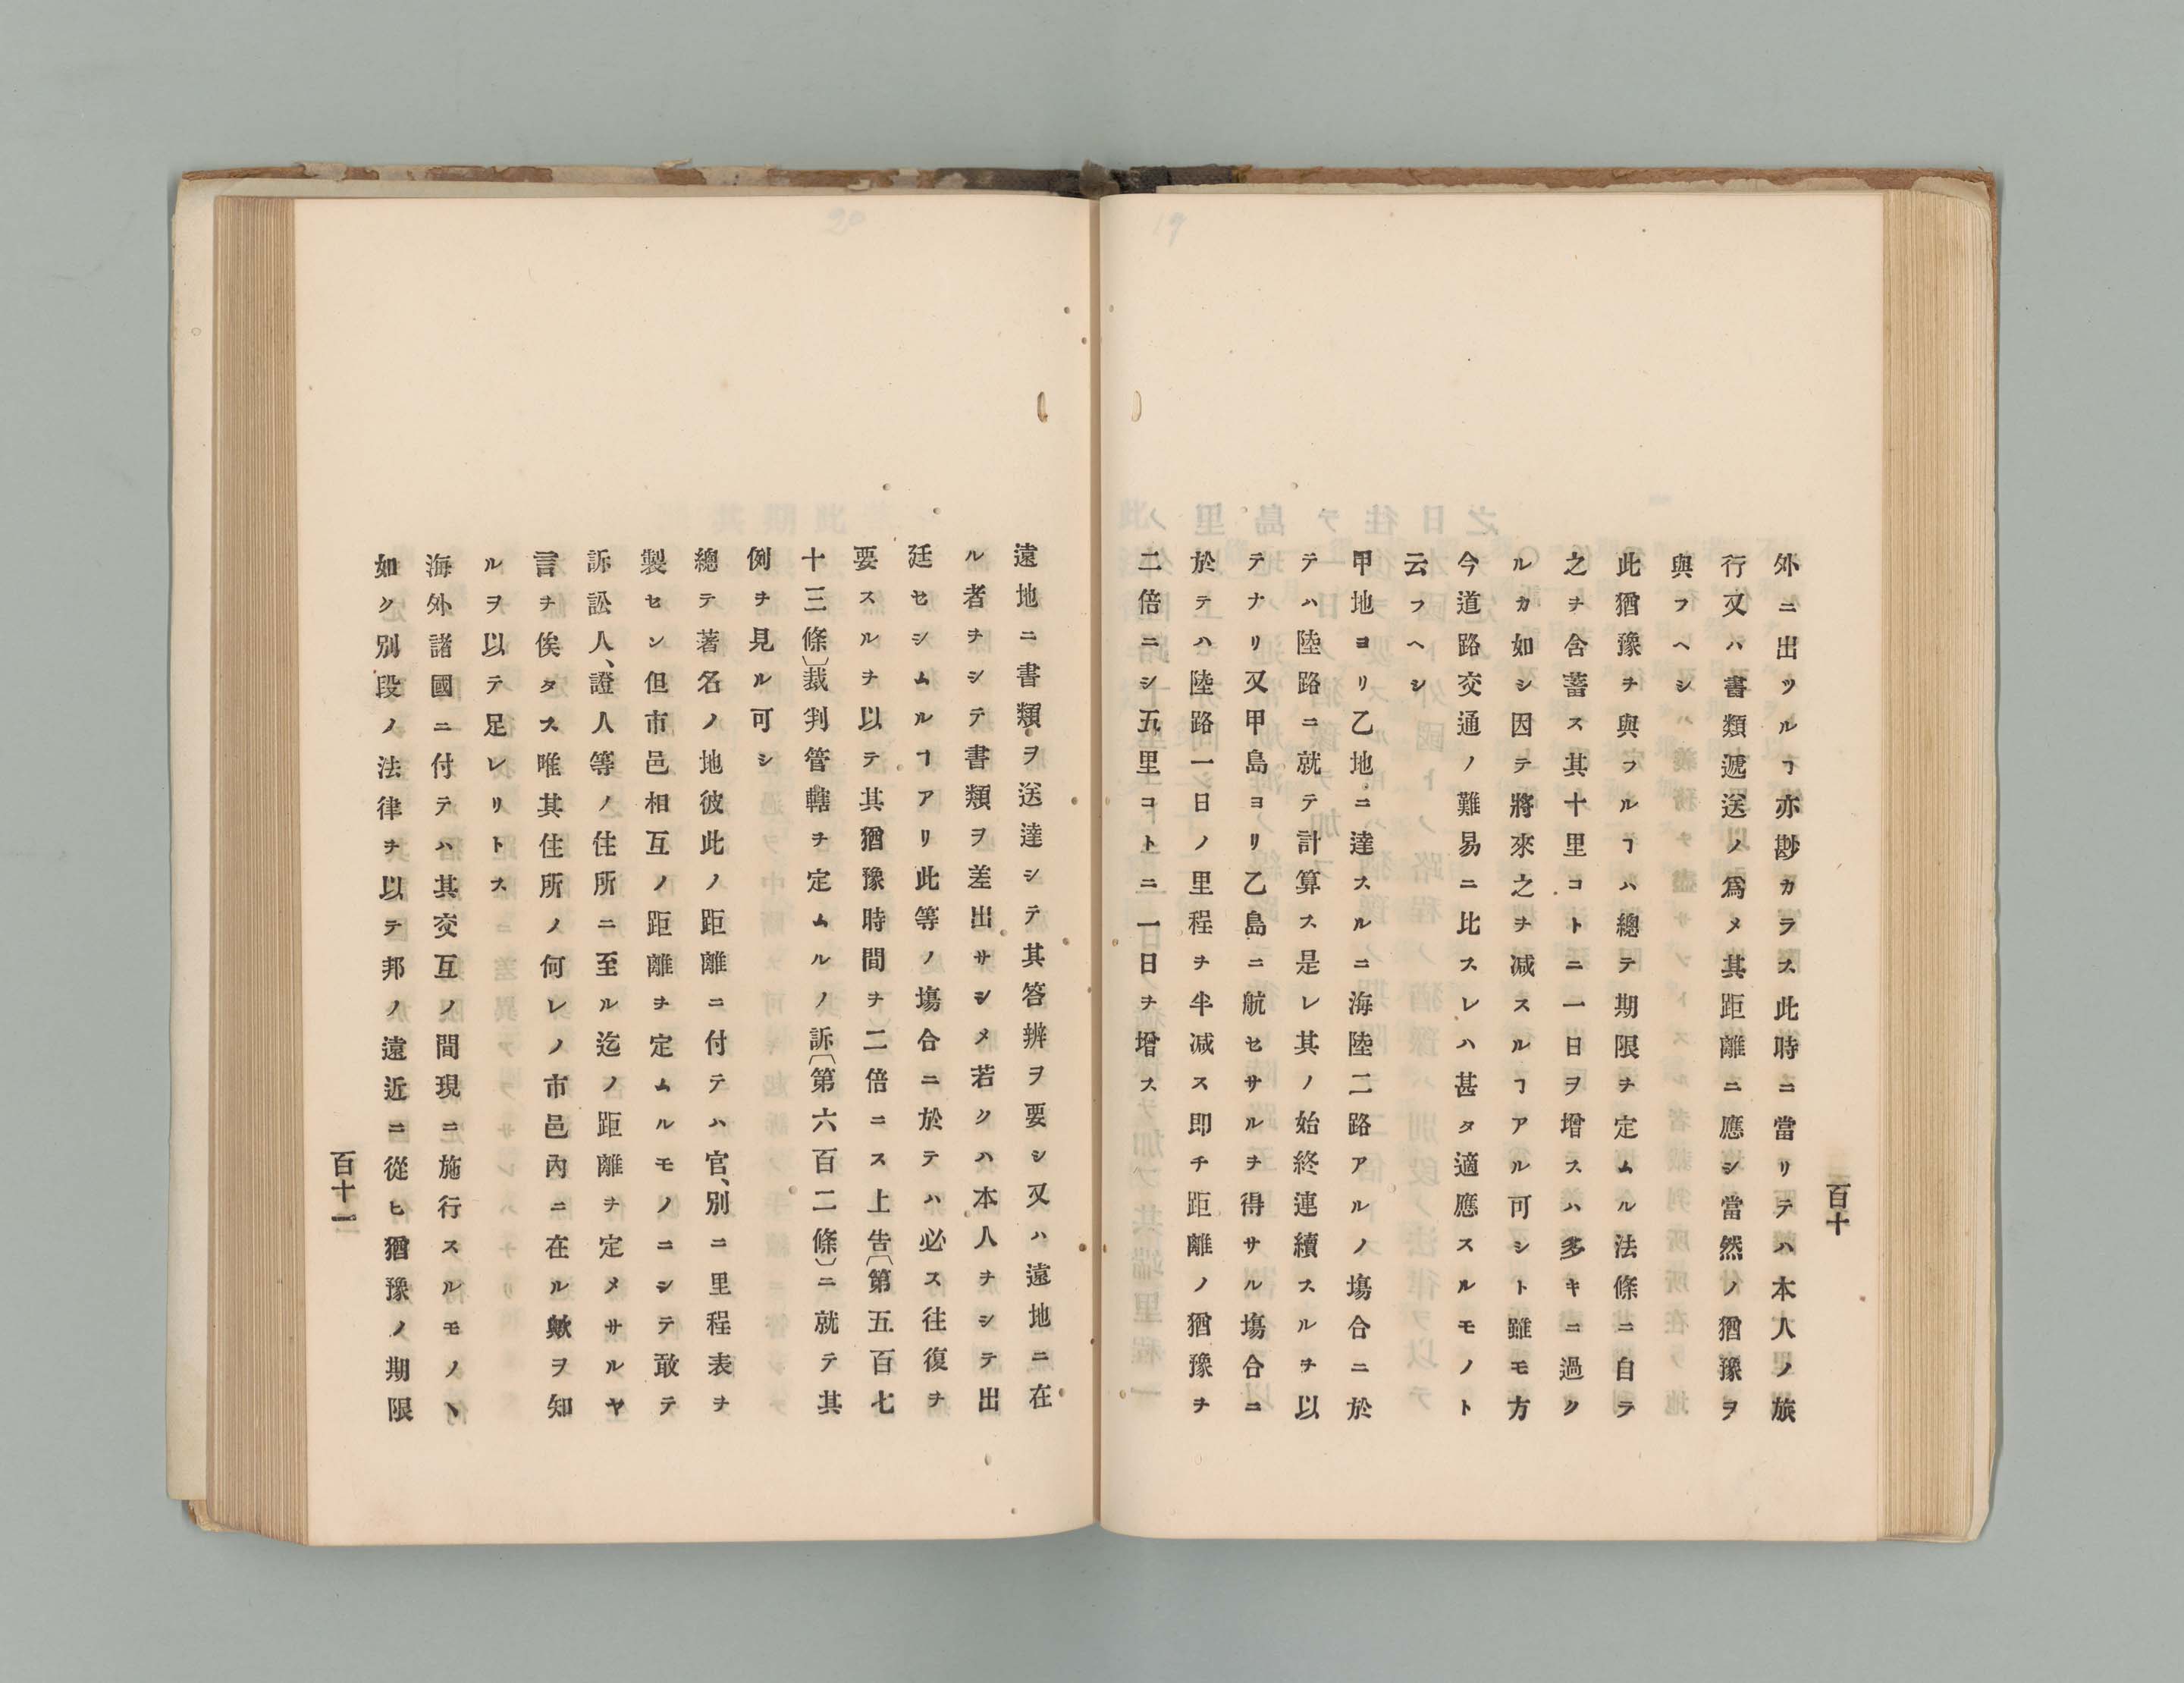 百十
外ニ出ツルヿ亦尠カラス此時ニ當リテハ本人ノ旅
行又ハ書類遞送ノ爲メ其距離ニ應シ當然ノ猶豫ヲ
與フヘシ
此猶豫ヲ與フルヿハ總テ期限ヲ定ムル法條ニ自ラ
之ヲ含蓄ス其十里コトニ一日ヲ增スハ多キニ過ク
ルカ如シ因テ將來之ヲ减スルヿアル可シト雖モ方
今道路交通ノ難易ニ比スレハ甚タ適應スルモノト
云フヘシ
甲地ヨリ乙地ニ達スルニ海陸二路アルノ塲合ニ於
テハ陸路ニ就テ計算ス是レ其ノ始終連續スルヲ以
テナリ又甲島ヨリ乙島ニ航セサルヲ得サル塲合ニ
於テハ陸路一日ノ里程ヲ半减ス即チ距離ノ猶豫ヲ
二倍ニシ五里コトニ一日ヲ增ス
遠地ニ書類ヲ送達シテ其答辨ヲ要シ又ハ遠地ニ在
ル者ヲシテ書類ヲ差出サシメ若クハ本人ヲシテ出
廷セシムルヿアリ此等ノ塲合ニ於テハ必ス往復ヲ
要スルヲ以テ其猶豫時間ヲ二倍ニス上告〔第五百七
十三條〕裁判管轄ヲ定ムルノ訴〔第六百二條〕ニ就テ其
例ヲ見ル可シ
總テ著名ノ地彼此ノ距離ニ付テハ官、別ニ里程表ヲ
製セン但市邑相互ノ距離ヲ定ムルモノニシテ敢テ
訴訟人、證人等ノ住所ニ至ル迄ノ距離ヲ定メサルヤ
言ヲ俟タス唯其住所ノ何レノ市邑內ニ在ル歟ヲ知
ルヲ以テ足レリトス
海外諸國ニ付テハ其交互ノ間現ニ施行スルモノヽ
如ク別段ノ法律ヲ以テ邦ノ遠近ニ從ヒ猶豫ノ期限
百十一